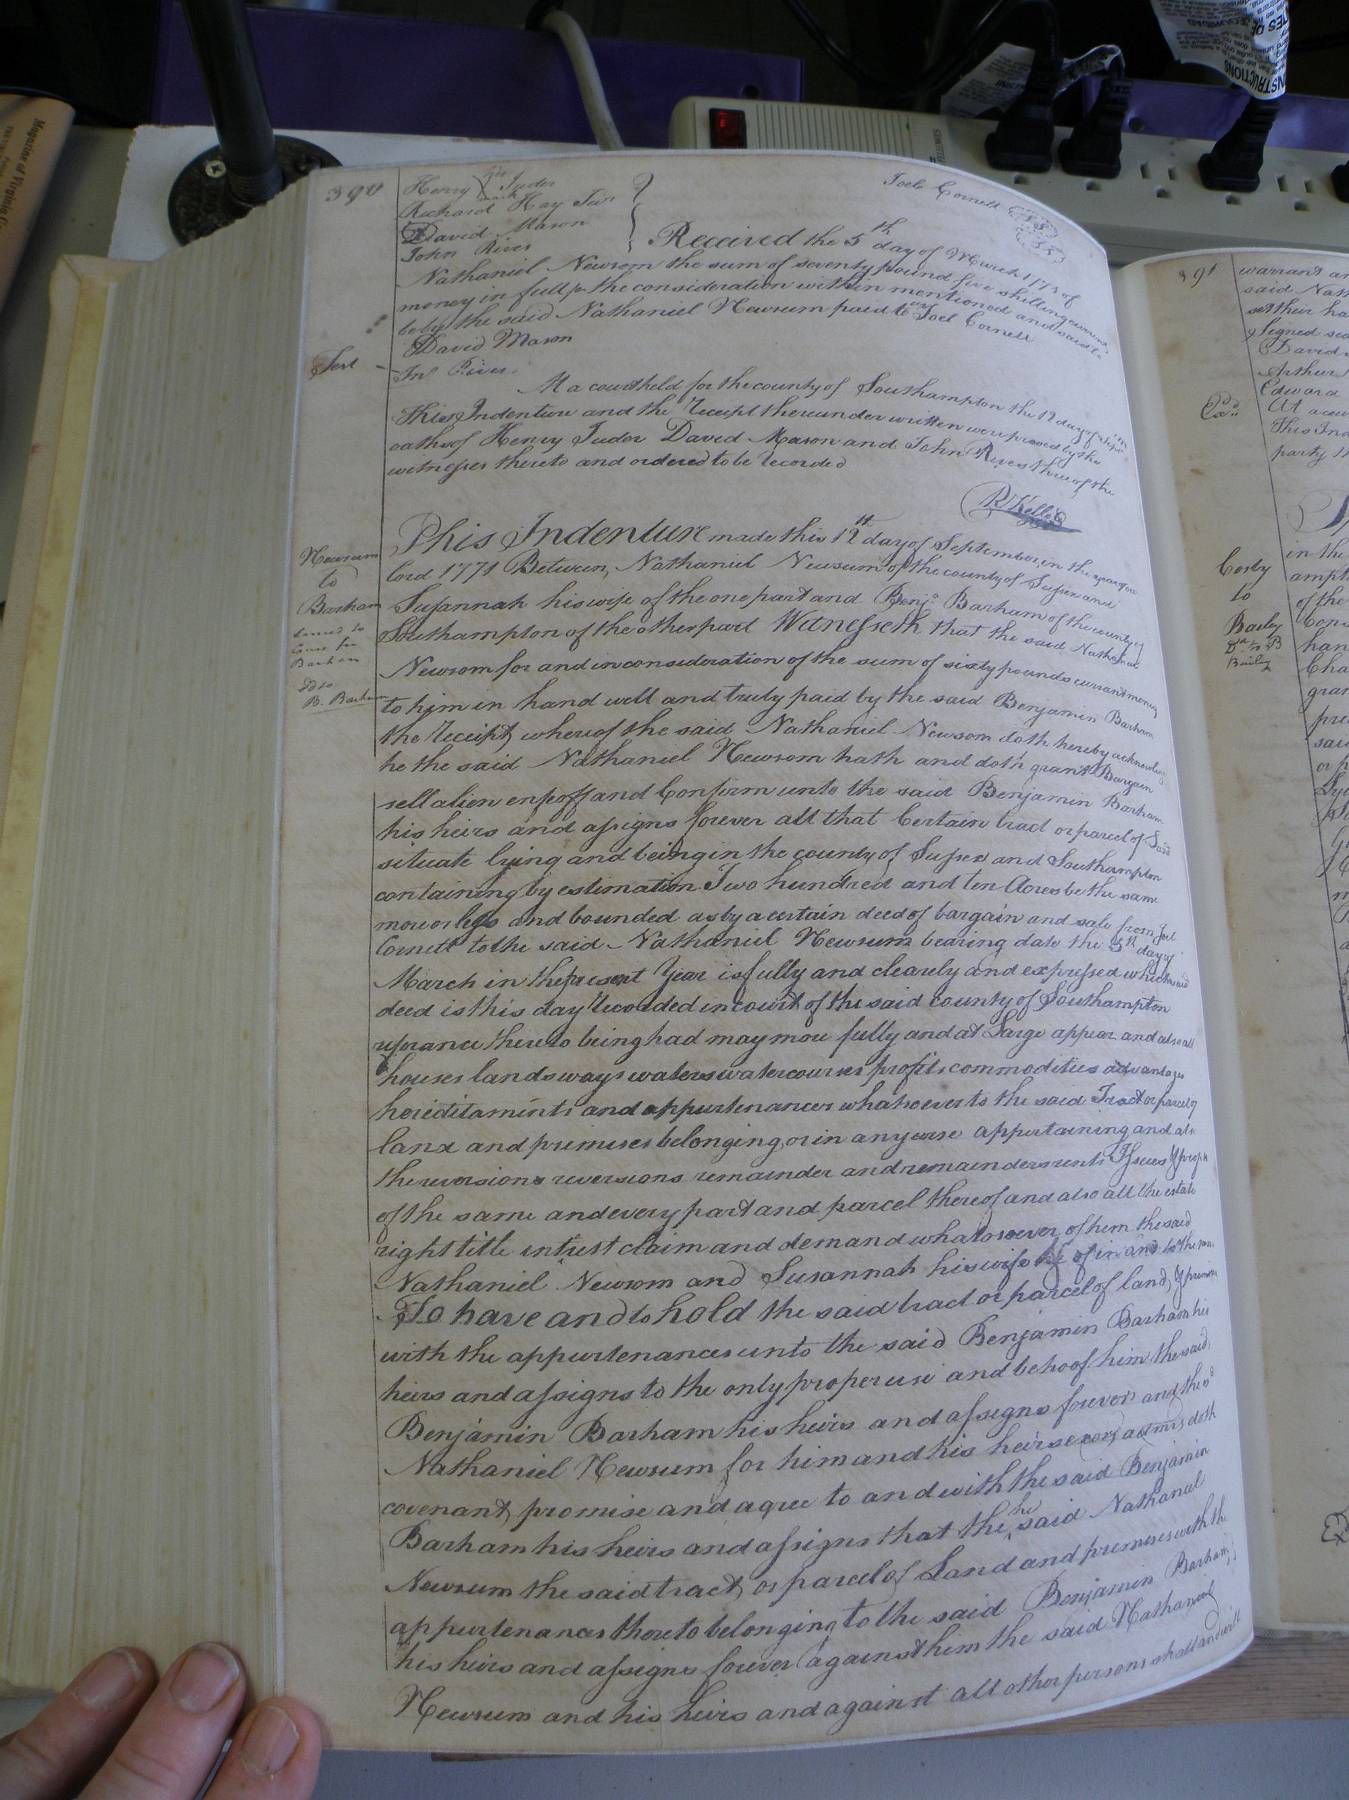 390
Henry his mark Juder
Richard Hay Jun
David Mason
John Rives
Joel Cornett
Received the 5th day of March 1771 of
Nathaniel Newsom the sum of seventy pound five shilling current
money in full for the consideration within mentioned and said to
be by the said Nathaniel Newsum paid to me Joel Cornett
David Mason
Test
Jno Rives
At a court held for the county of Southampton the 12 day of
this Indenture and the Receipt thereunder written were proved by the
oaths of Henry Juder David Mason and John Rives three of the
witnesses thereto and ordered to be recorded
Newsum
to
Barham
B. Barham
This Indenture made this 12th day of September in the year of our
lord 1771 Between Nathaniel Newsum of the county of Sussex and
Susannah his wife of the one part and Benja Barham of the county of
Southampton of the other part Witnesseth that the said Nathaniel
Newsom for and in consideration of the sum of sixty pounds current money
to him in hand well and truly paid by the said Benjamin Barham
the Receipt whereof the said Nathaniel Newsom doth hereby acknowledge
he the said Nathaniel Newsom hath and doth grant Bargain
sell alien enfeoff and Confirm unto the said Benjamin Barham
his heirs and assigns forever all that Certain tract or parcel of Land
situate lying and being in the county of Sussex and Southampton
containing by estimation Two hundred and ten Acres be the same
more or less and bounded as by a certain deed of bargain and sale from Joel
Cornett to the said Nathaniel Newsum bearing date the 5th day of
March in the present Year is fully and clearely and expressed which said
deed is this day recorded in court of the said county of Southampton
referance thereto being had may more fully and at Large appear and also all
houses lands ways waters watercourses profits commodities advantages
hereditaments and appurtenances whatsoever to the said Tract or parcel of
land and premises belonging or in any wise appertaining and also
the reversion & reversions remainder and remainders rents Issues & profits
of the same and every part and parcel thereof and also all the estate
right title intrest claim and demand whatsoever of him the said
Nathaniel Newsom and Susannah his wife of in and to the same
To have and to hold the said tract or parcel of land & premises
with the appurtenances unto the said Benjamin Barham his
heirs and assigns to the only proper use and behoof him the said
Benjamin Barham his heirs and assigns forever and the sd
Nathaniel Newsum for him and his heirs exors admrs doth
covenant promise and agree to and with the said Benjamin
Barham his heirs and assigns that the he said Nathanal
Newsum the said tract or parcel of Land and premises with the
appurtenances thereto belonging to the said Benjamin Barham
his heirs and assigns forever against him the said Nathanial
Newsum and his heirs and against all other persons shall and will
391
warrant an
said Nath
set their ha
Signed sea
David
Arthur
Edward
At a cou
This Ind
party th
Corby
to
Baily
in the
ampt
of the
Cons
han
Cha
gran
pre
said
or p